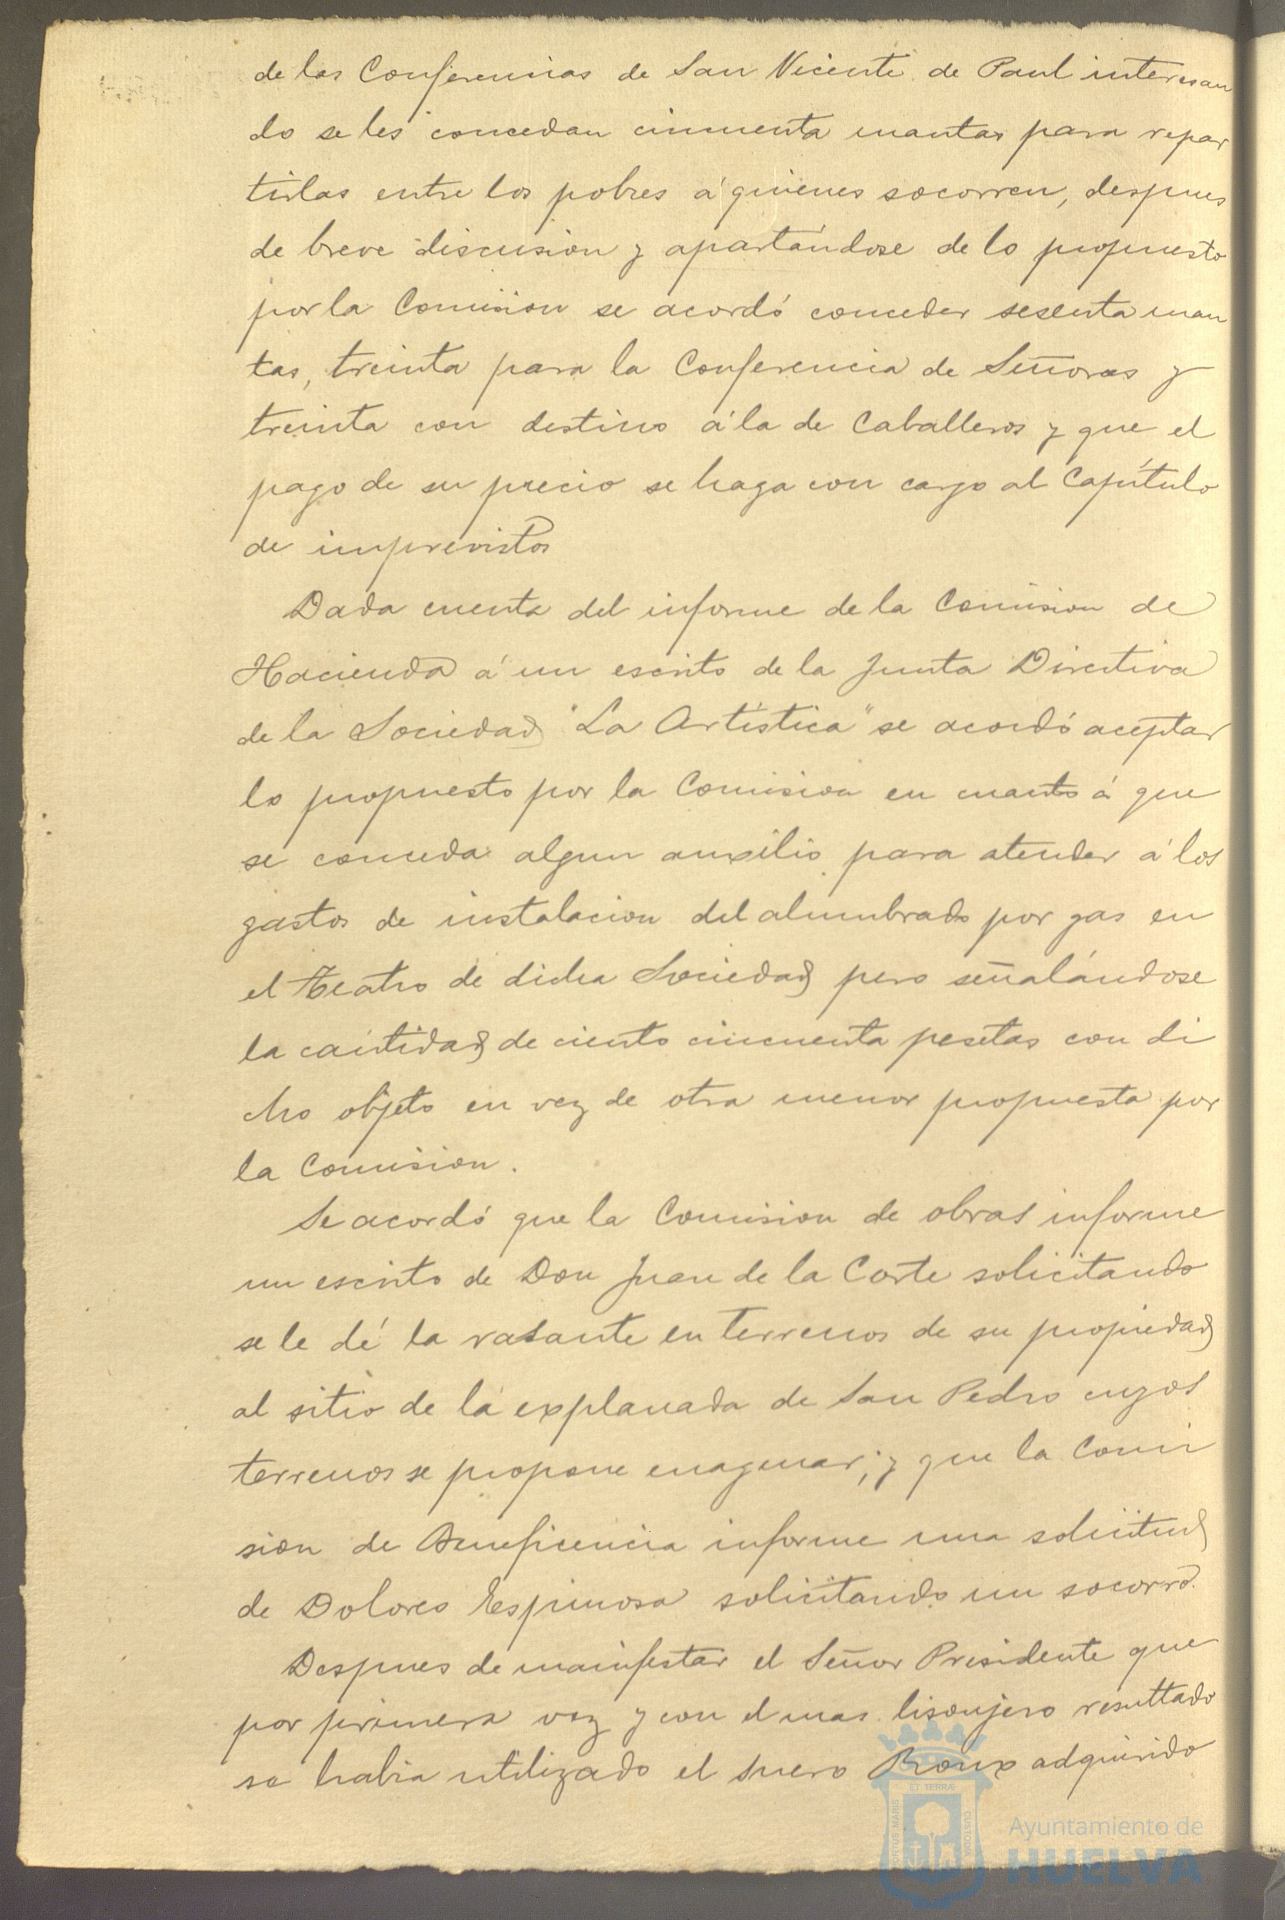 de las Conferencias de San Vicente de Paul interesan
do se les concedan cincuenta mantas para repar
tirlas entre los pobres á quienes socorren, despues
de breve discusion y apartándose de lo propuesto
por la Comision se acordó conceder sesenta man
tas, treinta para la Conferencia de Señoras y
treinta con destino á la de Caballeros y que el
pago de su precio se haga con cargo al Capítulo
de imprevistos
Dada cuenta del informe de la Comision de
Hacienda á un escrito de la Junta Directiva
de la Sociedad "La Artística" se acordó aceptar
lo propuesto por la Comision en cuanto á que
se conceda algun auxilio para atender á los
gastos de instalacion del alumbrado por gas en
el Teatro de dicha Sociedad pero señalándose
la cantidad de ciento cincuenta pesetas con di
cho objeto en vez de otra menor propuesta por
la Comision.
Se acordó que la Comision de obras informe
un escrito de Don Juan de la Corte solicitando
se le dé la rasante en terrenos de su propiedad
al sitio de la explanada de San Pedro cuyos
terrenos se propone enagenar; y que la Comi
sion de Beneficencia informe una solicitud
de Dolores Espinosa solicitando un socorro.
Despues de manifestar el Señor Presidente que
por primera vez y con el mas lisonjero resultado
se habia utilizado el suero Roux adquirido
ET TERRÆ
PORTUS MARIS
CUSTODIA
Ayuntamiento de
HUELVA